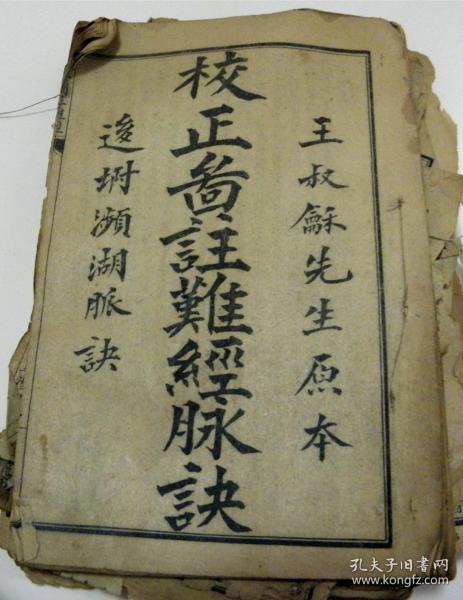 王叔龢先生原本
校正啚註難經脉訣
後坿瀕湖脈訣
孔夫子旧书网
www.kongfz.com